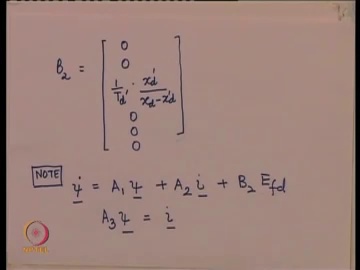 B₂ =
0
0
1/T'd · x'd/(xd−x'd)
0
0
0
NOTE
ψ̇ = A₁ ψ + A₂ i + B₂ Efd
A₃ ψ = i
NPTEL